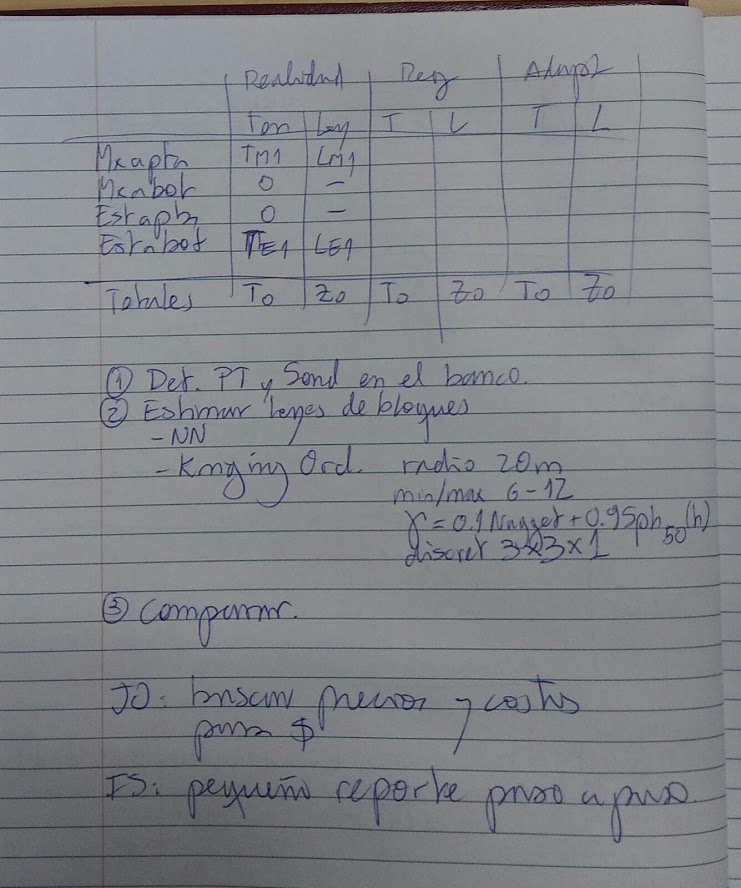 Realidad Reg Adapt
Ton Ley T L T L
Mx a pta TM1 LM1
Mx a bot 0 -
Est a pta 0 -
Est a bot TE1 LE1
Totales T0 Z0 T0 Z0 T0 Z0
① Det. PT y Sond en el banco.
② Estimar leyes de bloques
- NN
- Kriging Ord. radio 20m
min/max 6-12
γ = 0.1 Nugget + 0.9 Sph50(h)
discret 3x3x1
③ Comparar.
JO: buscar precios y costos
para $
FS: pequeño reporte paso a paso